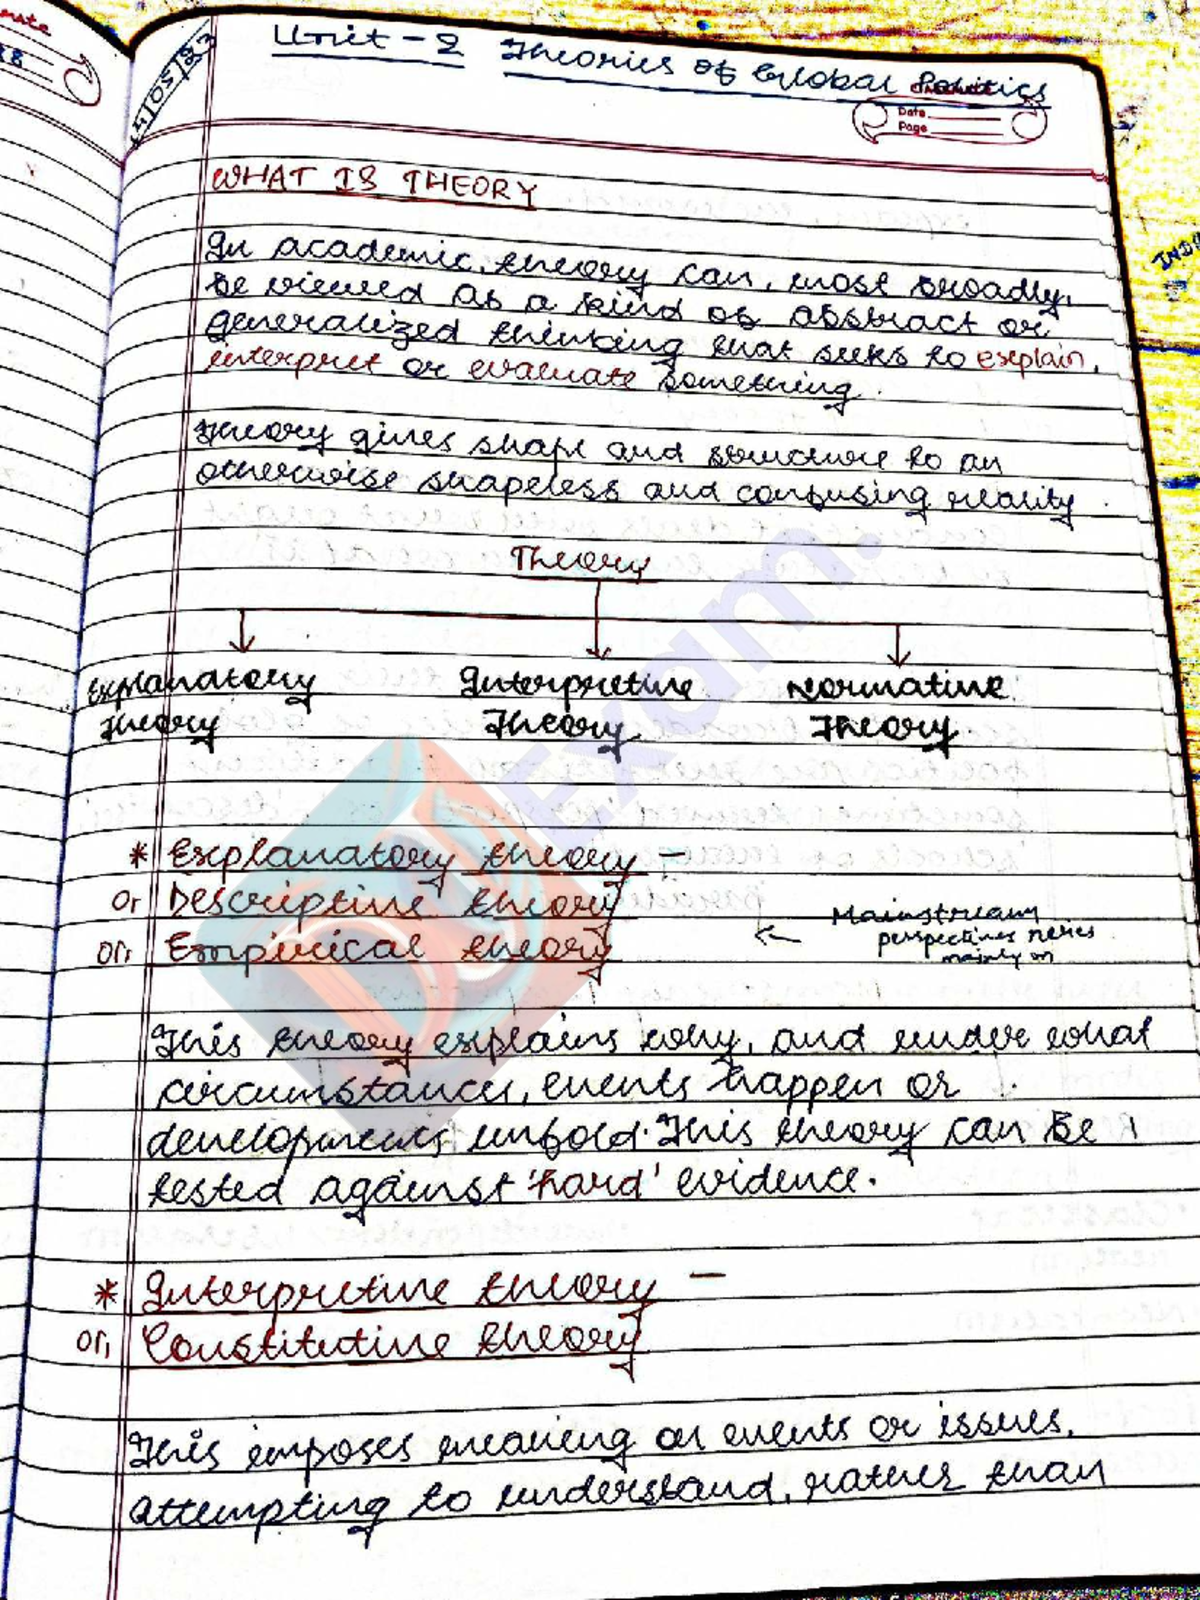 Unit - 2 Theories of Global Politics
Date
Page
WHAT IS THEORY
In academic, theory can, most broadly,
be viewed as a kind of abstract or
generalized thinking that seeks to explain,
interpret or evaluate something.
Theory gives shape and structure to an
otherwise shapeless and confusing reality.
Theory
Explanatory Interpretive Normative
Theory Theory Theory.
* Explanatory theory -
Or Descriptive theory
Or, Empirical theory
Mainstream
perspectives relies
mainly on
This theory explains why, and under what
circumstances, events happen or
developments unfold. This theory can be
tested against 'hard' evidence.
* Interpretive theory -
Or, Constitutive theory
This imposes meaning on events or issues,
attempting to understand, rather than
Exam.